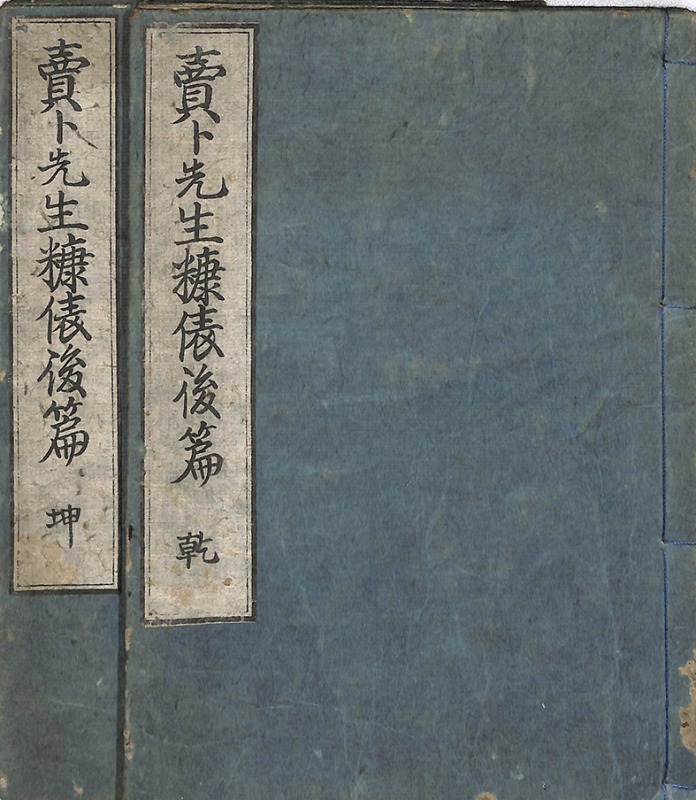 賣卜先生糠俵後篇 乾
賣卜先生糠俵後篇 坤